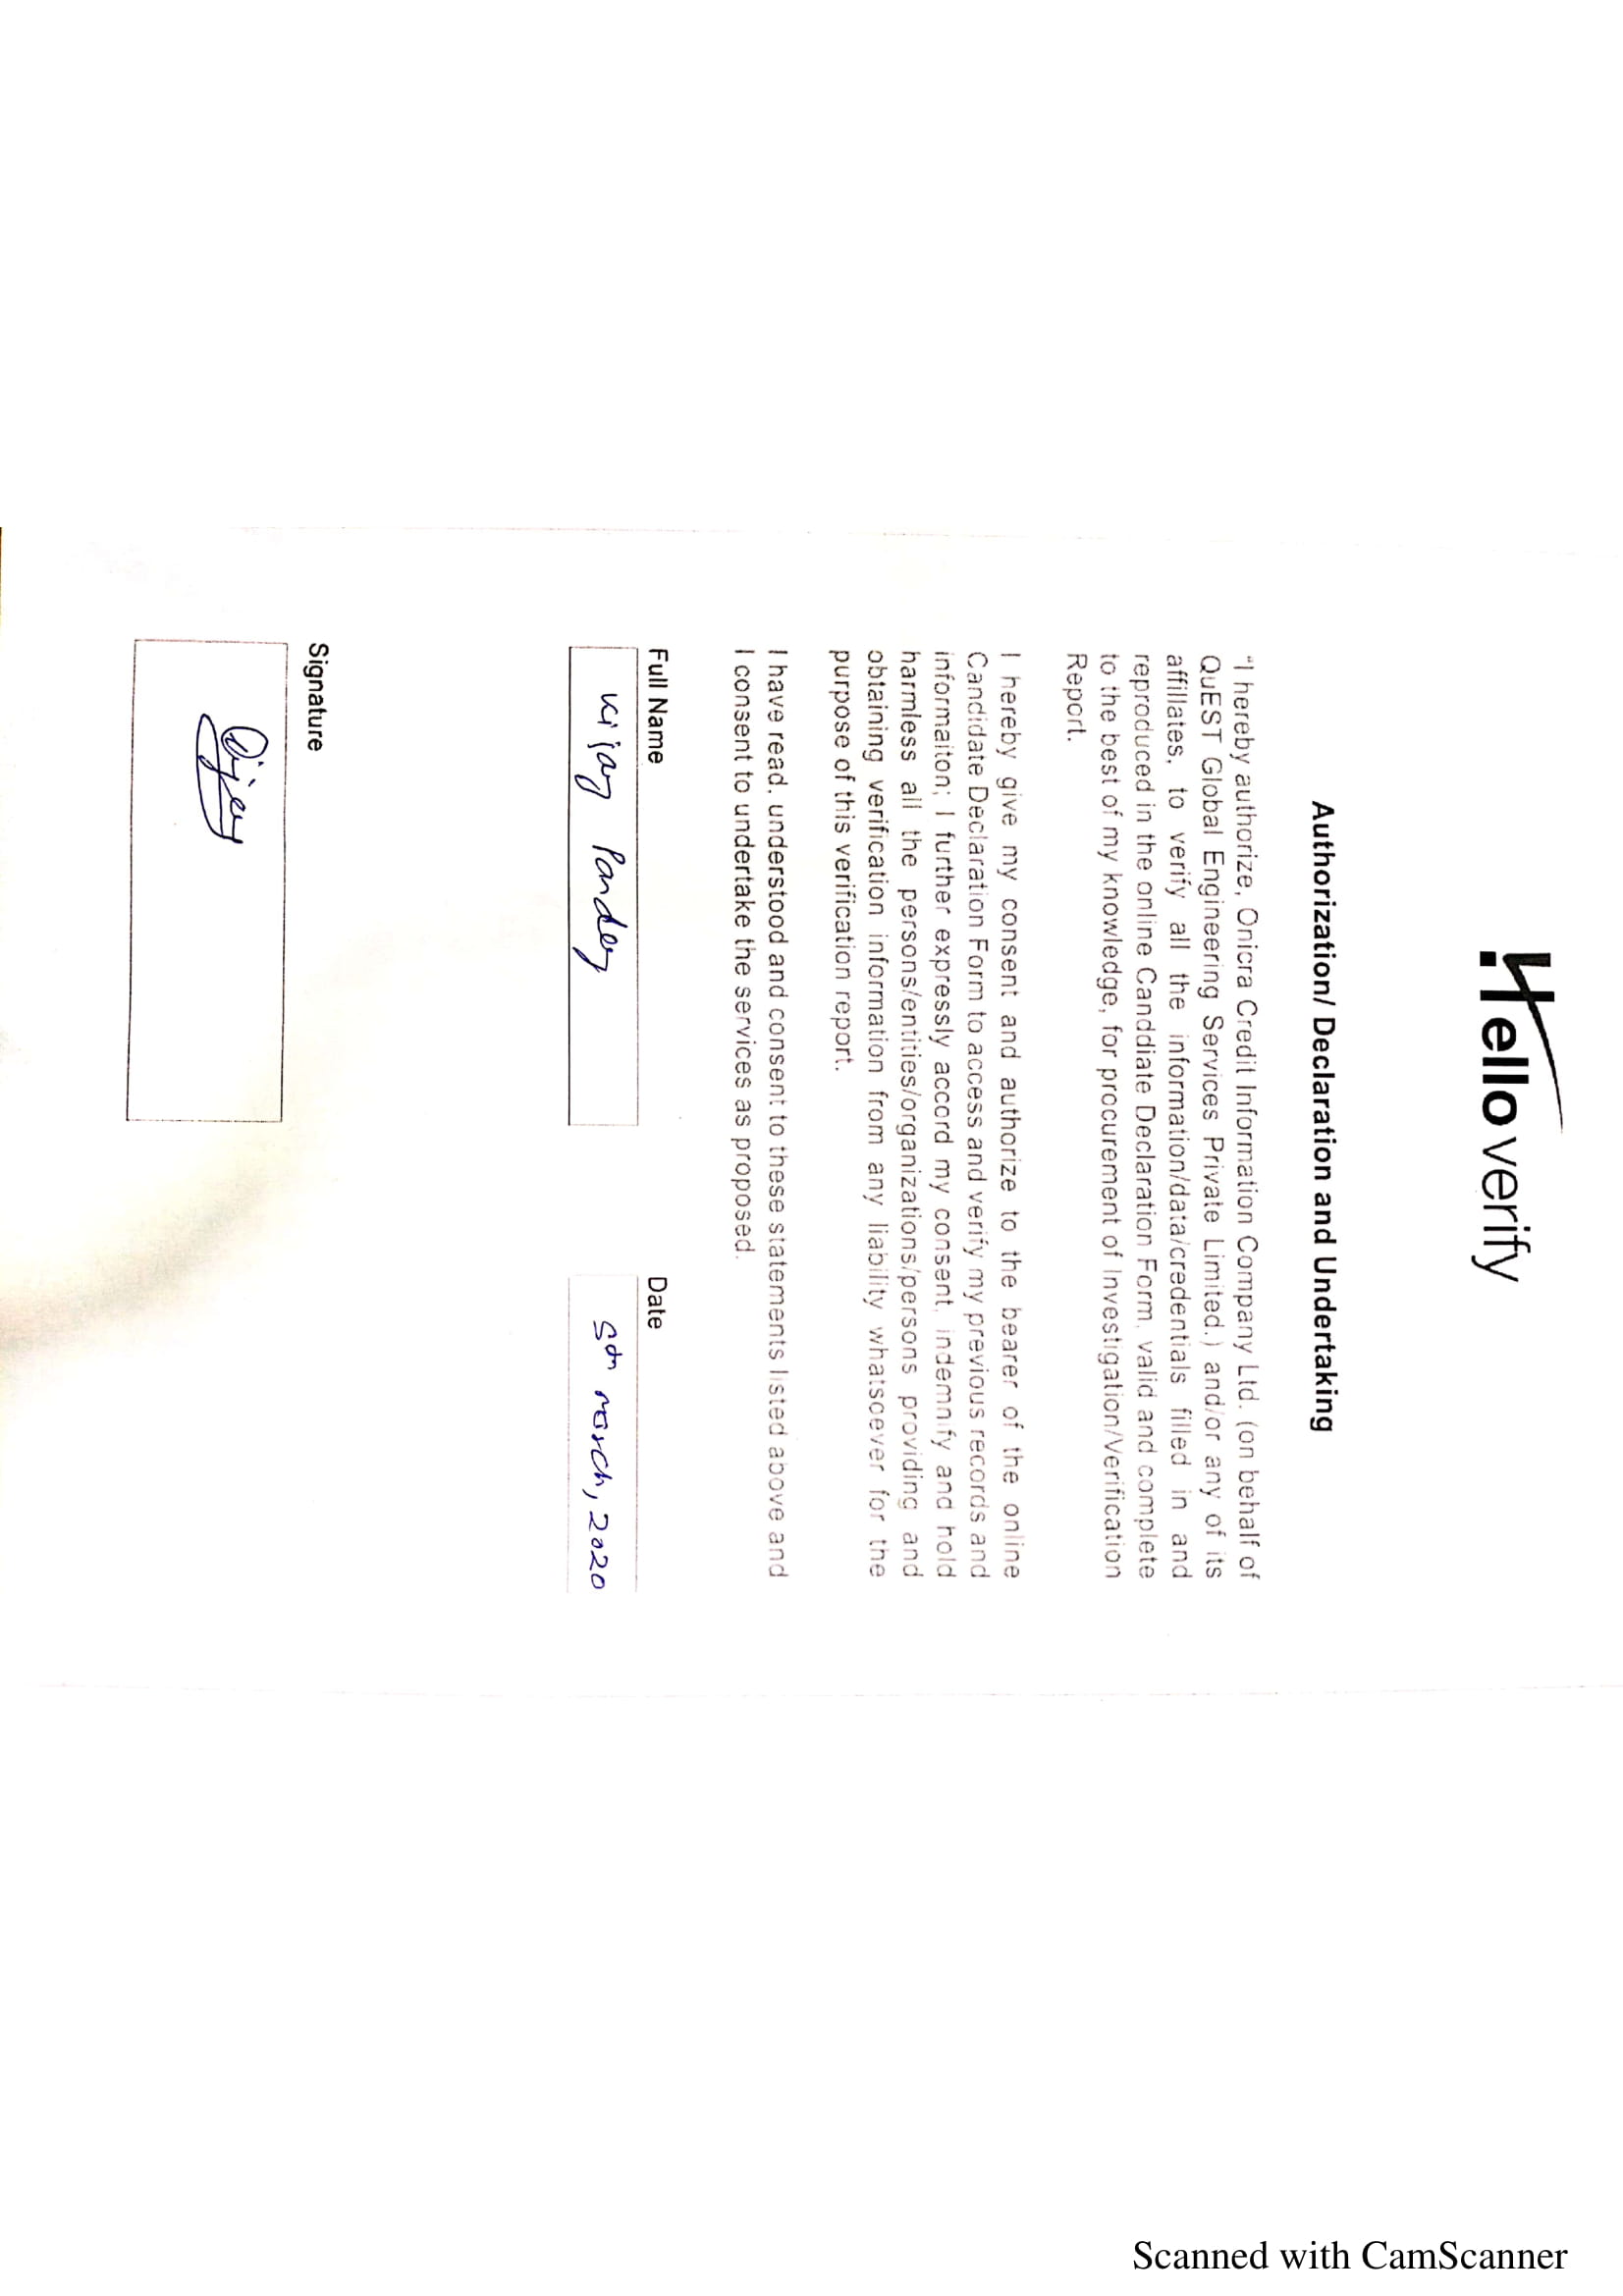 Hello verify
Authorization/ Declaration and Undertaking
"I hereby authorize, Onicra Credit Information Company Ltd. (on behalf of
QuEST Global Engineering Services Private Limited.) and/or any of its
affillates, to verify all the information/data/credentials filled in and
reproduced in the online Canddiate Declaration Form, valid and complete
to the best of my knowledge, for procurement of Investigation/Verification
Report.
I hereby give my consent and authorize to the bearer of the online
Candidate Declaration Form to access and verify my previous records and
informaiton; I further expressly accord my consent, indemnify and hold
harmless all the persons/entities/organizations/persons providing and
obtaining verification information from any liability whatsoever for the
purpose of this verification report.
I have read, understood and consent to these statements listed above and
I consent to undertake the services as proposed.
Full Name Date
Vijay Pandey 5th March, 2020
Signature
Vijay
Scanned with CamScanner